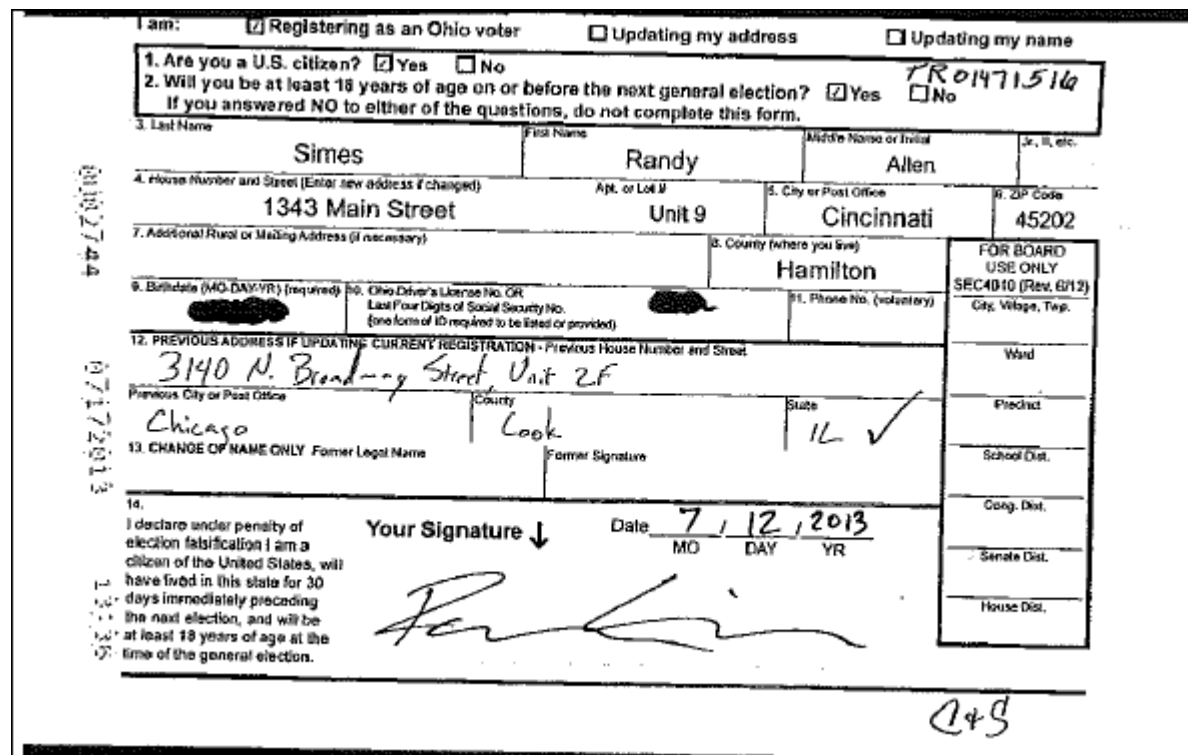 I am: ☑ Registering as an Ohio voter ☐ Updating my address ☐ Updating my name
1. Are you a U.S. citizen? ☑ Yes ☐ No
TR01471516
2. Will you be at least 18 years of age on or before the next general election? ☑ Yes ☐ No
If you answered NO to either of the questions, do not complete this form.
3. Last Name First Name Middle Name or Initial Jr., II, etc.
Simes Randy Allen
4. House Number and Street (Enter new address if changed) Apt. or Lot # 5. City or Post Office 6. ZIP Code
1343 Main Street Unit 9 Cincinnati 45202
7. Additional Rural or Mailing Address (if necessary) 8. County (where you live)
Hamilton
FOR BOARD
USE ONLY
SEC4010 (Rev. 6/12)
City, Village, Twp.
Ward
Precinct
School Dist.
Cong. Dist.
Senate Dist.
House Dist.
9. Birthdate (MO-DAY-YR) (required) 10. Ohio Driver's License No. OR
Last Four Digits of Social Security No.
(one form of ID required to be listed or provided)
11. Phone No. (voluntary)
12. PREVIOUS ADDRESS IF UPDATING CURRENT REGISTRATION - Previous House Number and Street
3140 N. Broadway Street, Unit 2F
Previous City or Post Office County State
Chicago Cook IL ✓
13. CHANGE OF NAME ONLY Former Legal Name Former Signature
14.
I declare under penalty of
election falsification I am a
citizen of the United States, will
have lived in this state for 30
days immediately preceding
the next election, and will be
at least 18 years of age at the
time of the general election.
Your Signature ↓ Date 7 / 12 / 2013
MO DAY YR
07172013